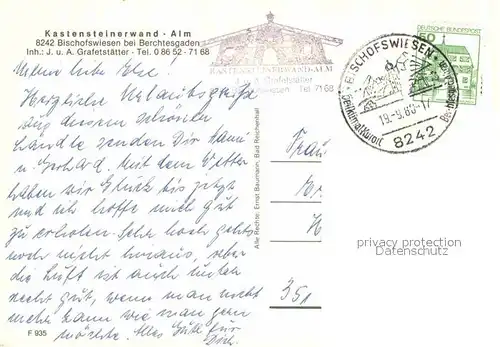 Kastensteinerwand - Alm
8242 Bischofswiesen bei Berchtesgaden
Inh.: J. u. A. Grafetstätter · Tel. 0 86 52 - 71 68
KASTENSTEINERWAND-ALM
A. Grafetstätter
wiesen Tel 71 68
DEUTSCHE BUNDESPOST
60
BISCHOFSWIESEN
Heilklimat. Kurort
19.-9.80-17
8242
Meine liebe Else!
Herzliche Urlaubsgrüße
aus dem schönen
Landle senden Dir Hanni
u. Gerhard. Mit dem Wetter
haben wir Glück bis jetzt
und ich hoffe mich gut
zu erholen. Sehr hoch gehts
noch nicht hinaus, aber
die Luft ist auch unten
recht gut, wenn man nicht
mehr kann wie man gern
möchte. Alles Gute für
Dich.
Frau
H
351
Alle Rechte: Ernst Baumann, Bad Reichenhall
privacy protection
Datenschutz
F 935